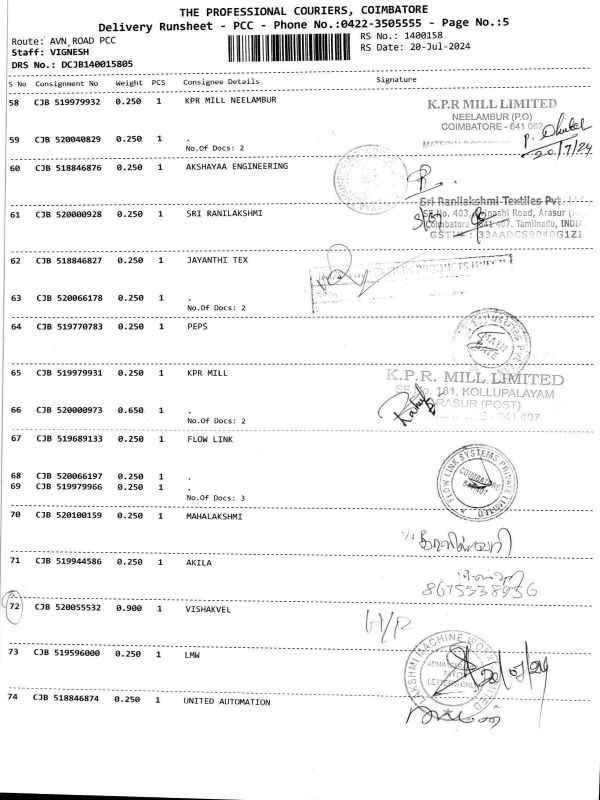 THE PROFESSIONAL COURIERS, COIMBATORE
Delivery Runsheet - PCC - Phone No.:0422-3505555 - Page No.:5
Route: AVN ROAD PCC
Staff: VIGNESH
DRS No.: DCJB140015805
RS No.: 1400158
RS Date: 20-Jul-2024
S No Consignment No Weight PCS Consignee Details Signature
58 CJB 519979932 0.250 1 KPR MILL NEELAMBUR
K.P.R MILL LIMITED
NEELAMBUR (P.O)
COIMBATORE - 641 062
59 CJB 520040829 0.250 1 .
No.Of Docs: 2
20/7/24
60 CJB 518846876 0.250 1 AKSHAYAA ENGINEERING
61 CJB 520000928 0.250 1 SRI RANILAKSHMI
Sri Ranilakshmi Textiles Pvt. Ltd
SF No. 403, Avinashi Road, Arasur
Coimbatore 641 407. Tamilnadu, INDIA
GSTIN : 33AADCS9040G1Z1
62 CJB 518846827 0.250 1 JAYANTHI TEX
63 CJB 520066178 0.250 1 .
No.Of Docs: 2
64 CJB 519770783 0.250 1 PEPS
MAIN
GATE
65 CJB 519979931 0.250 1 KPR MILL
K.P.R. MILL LIMITED
SF No. 181, KOLLUPALAYAM
ARASUR (POST)
641 407
66 CJB 520000973 0.650 1 .
No.Of Docs: 2
67 CJB 519689133 0.250 1 FLOW LINK
FLOW LINK SYSTEMS PRIVATE LIMITED
COIMBATORE
641 407
68 CJB 520066197 0.250 1 .
69 CJB 519979966 0.250 1 .
No.Of Docs: 3
70 CJB 520100159 0.250 1 MAHALAKSHMI
71 CJB 519944586 0.250 1 AKILA
8675338956
72 CJB 520055532 0.900 1 VISHAKVEL
73 CJB 519596000 0.250 1 LMW
LAKSHMI MACHINE WORKS LIMITED
LETTERS ONLY
20/07/24
74 CJB 518846874 0.250 1 UNITED AUTOMATION